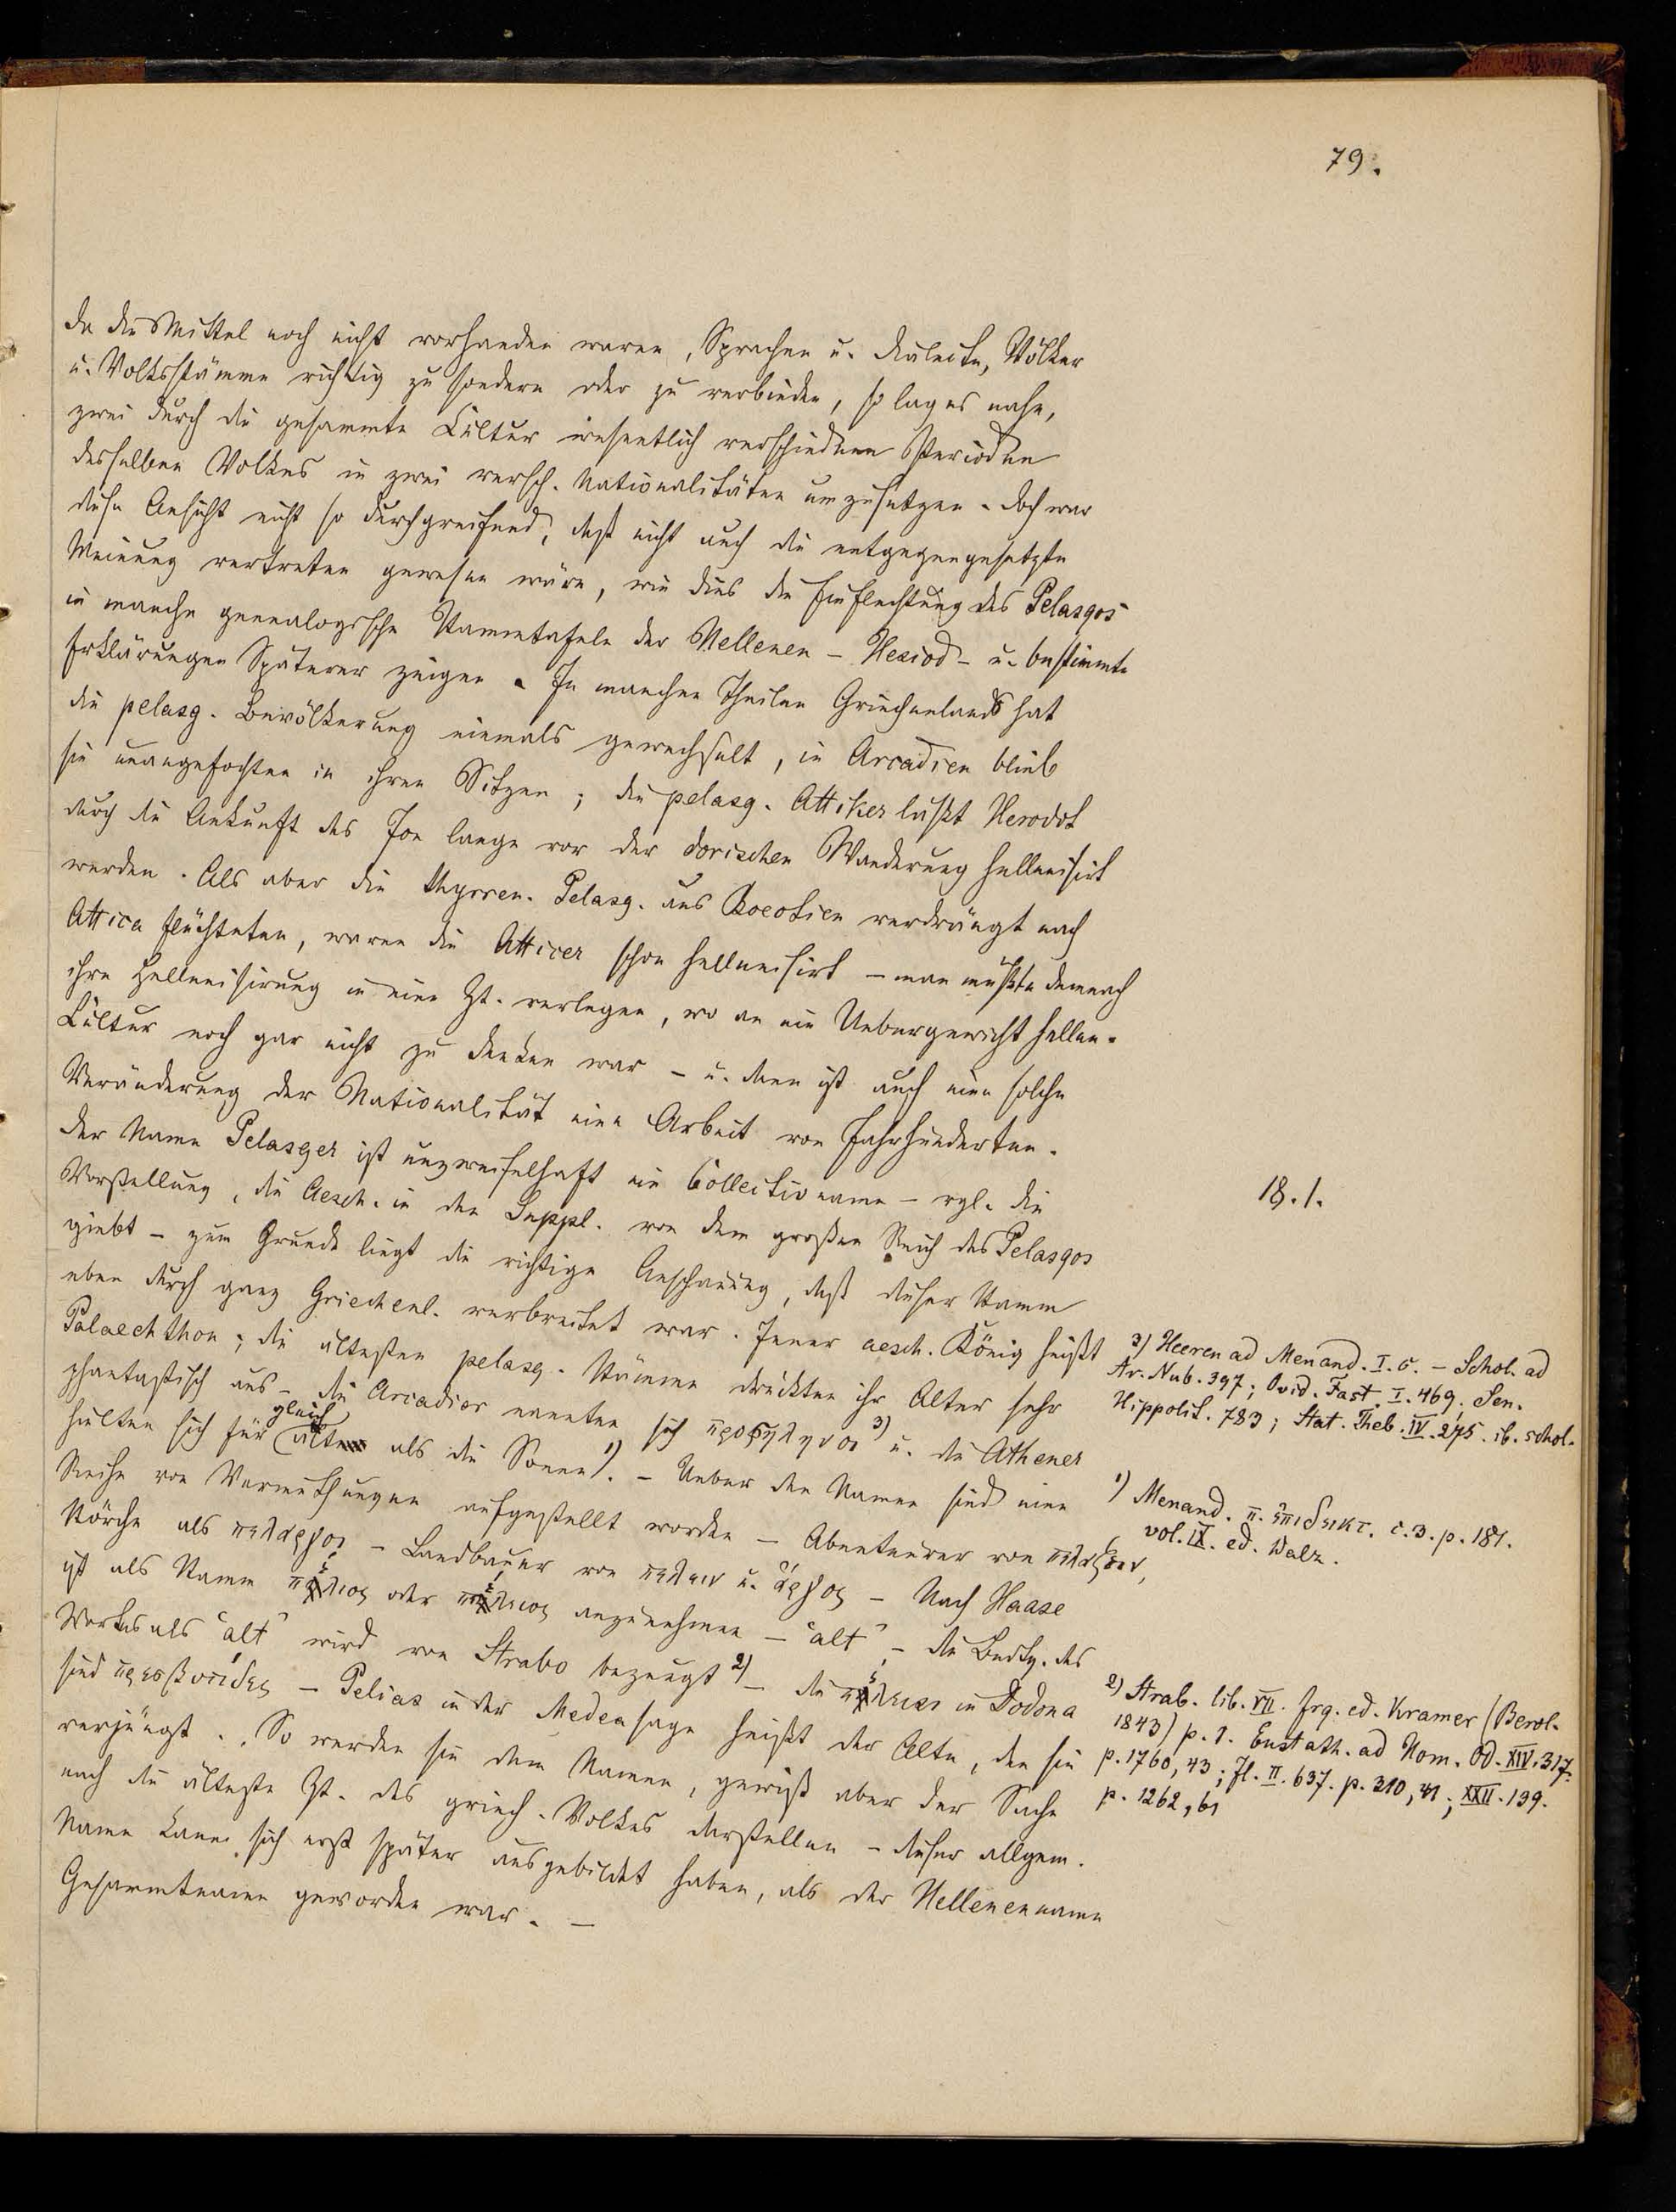 79.
da die Mittel noch nicht vorhanden waren, Sprachen u. Dialecte, Völker
u. Volksstämme richtig zu sondern oder zu verbinden, so lag es nahe,
zwei durch die gesammte Cultur wesentlich verschiedene Perioden
desselben Volkes in zwei versch. Nationalitäten umzusetzen. Doch war
diese Ansicht nicht so durchgreifend, daß nicht auch die entgegengesetzte
Meinung vertreten gewesen wäre, wie dies die Einflechtung des Pelasgos
in manche genealogische Stammtafeln der Hellenen – Hesiod – u. bestimmte
Erklärungen Späterer zeigen. In manchen Theilen Griechenlands hat
die pelasg. Bevölkerung niemals gewechselt, in Arcadien blieb
sie unangefochten in ihren Sitzen; die pelasg. Attiker läßt Herodot
durch die Ankunft des Jon lange vor der dorischen Wanderung hellenisirt
werden. Als aber die thyrren. Pelasg. aus Boeotien verdrängt nach
Attica flüchteten, waren die Atticer schon hellenisirt – man müßte demnach
ihre Hellenisirung in eine Zt. verlegen, wo an ein Uebergewicht hellen.
Cultur noch gar nicht zu denken war – u. dann ist auch eine solche
Veränderung der Nationalität eine Arbeit von Jahrhunderten.
Der Name Pelasger ist unzweifelhaft ein Collectivname – vgl. die
18.1.
Vorstellung, die Aesch. in den Suppl. von dem großen Reich des Pelasgos
giebt – zum Grunde liegt die richtige Anschauung, daß dieser Stamm
eben durch ganz Griechenl. verbreitet war. Jener aesch. König heißt
Palaechthon; die ältesten pelasg. Stämme drückten ihr Alter sehr
phantastisch aus – die Arcadier nannten sich προσηληνοι 3) u. die Athener
hielten sich für gleich alt als die Sonne 1). – Ueber den Namen sind eine
Reihe von Vermuthungen aufgestellt worden – Abenteurer von πελαζειν,
Störche als πελαργοι – Landbauer von πελειν u. ἄργος – Nach Haase
ist als Stamm πελιος oder πελειος anzunehmen – "alt" – die Bedtg. des
Wortes als "alt" wird von Strabo bezeugt 2) – die πελειαι in Dodona
sind πρεσβυτιδες – Pelias in der Medeasage heißt der Alte, den sie
verjüngt. So werden sie dem Namen, gewiß aber der Sache
nach die älteste Zt. des griech. Volkes darstellen – dieser allgem.
Name kann sich erst später ausgebildet haben, als der Hellenenname
Gesammtname geworden war. –
3) Heeren ad Menand. I. 6. – Schol. ad
Ar. Nub. 397; Ovid. Fast. I. 469. Sen.
Hippolit. 783; Stat. Theb. IV. 275. ib. schol.
1) Menand. π. ἐπιδεικτ. c. 3. p. 181.
vol. IX. ed. Walz.
2) Strab. lib. VII. frg. ed. Kramer (Berol.
1843) p. 1. Eustath. ad Hom. Od. XIV. 317.
p. 1760, 43; Jl. II. 637. p. 310, 41; XXII. 139.
p. 1262, 61